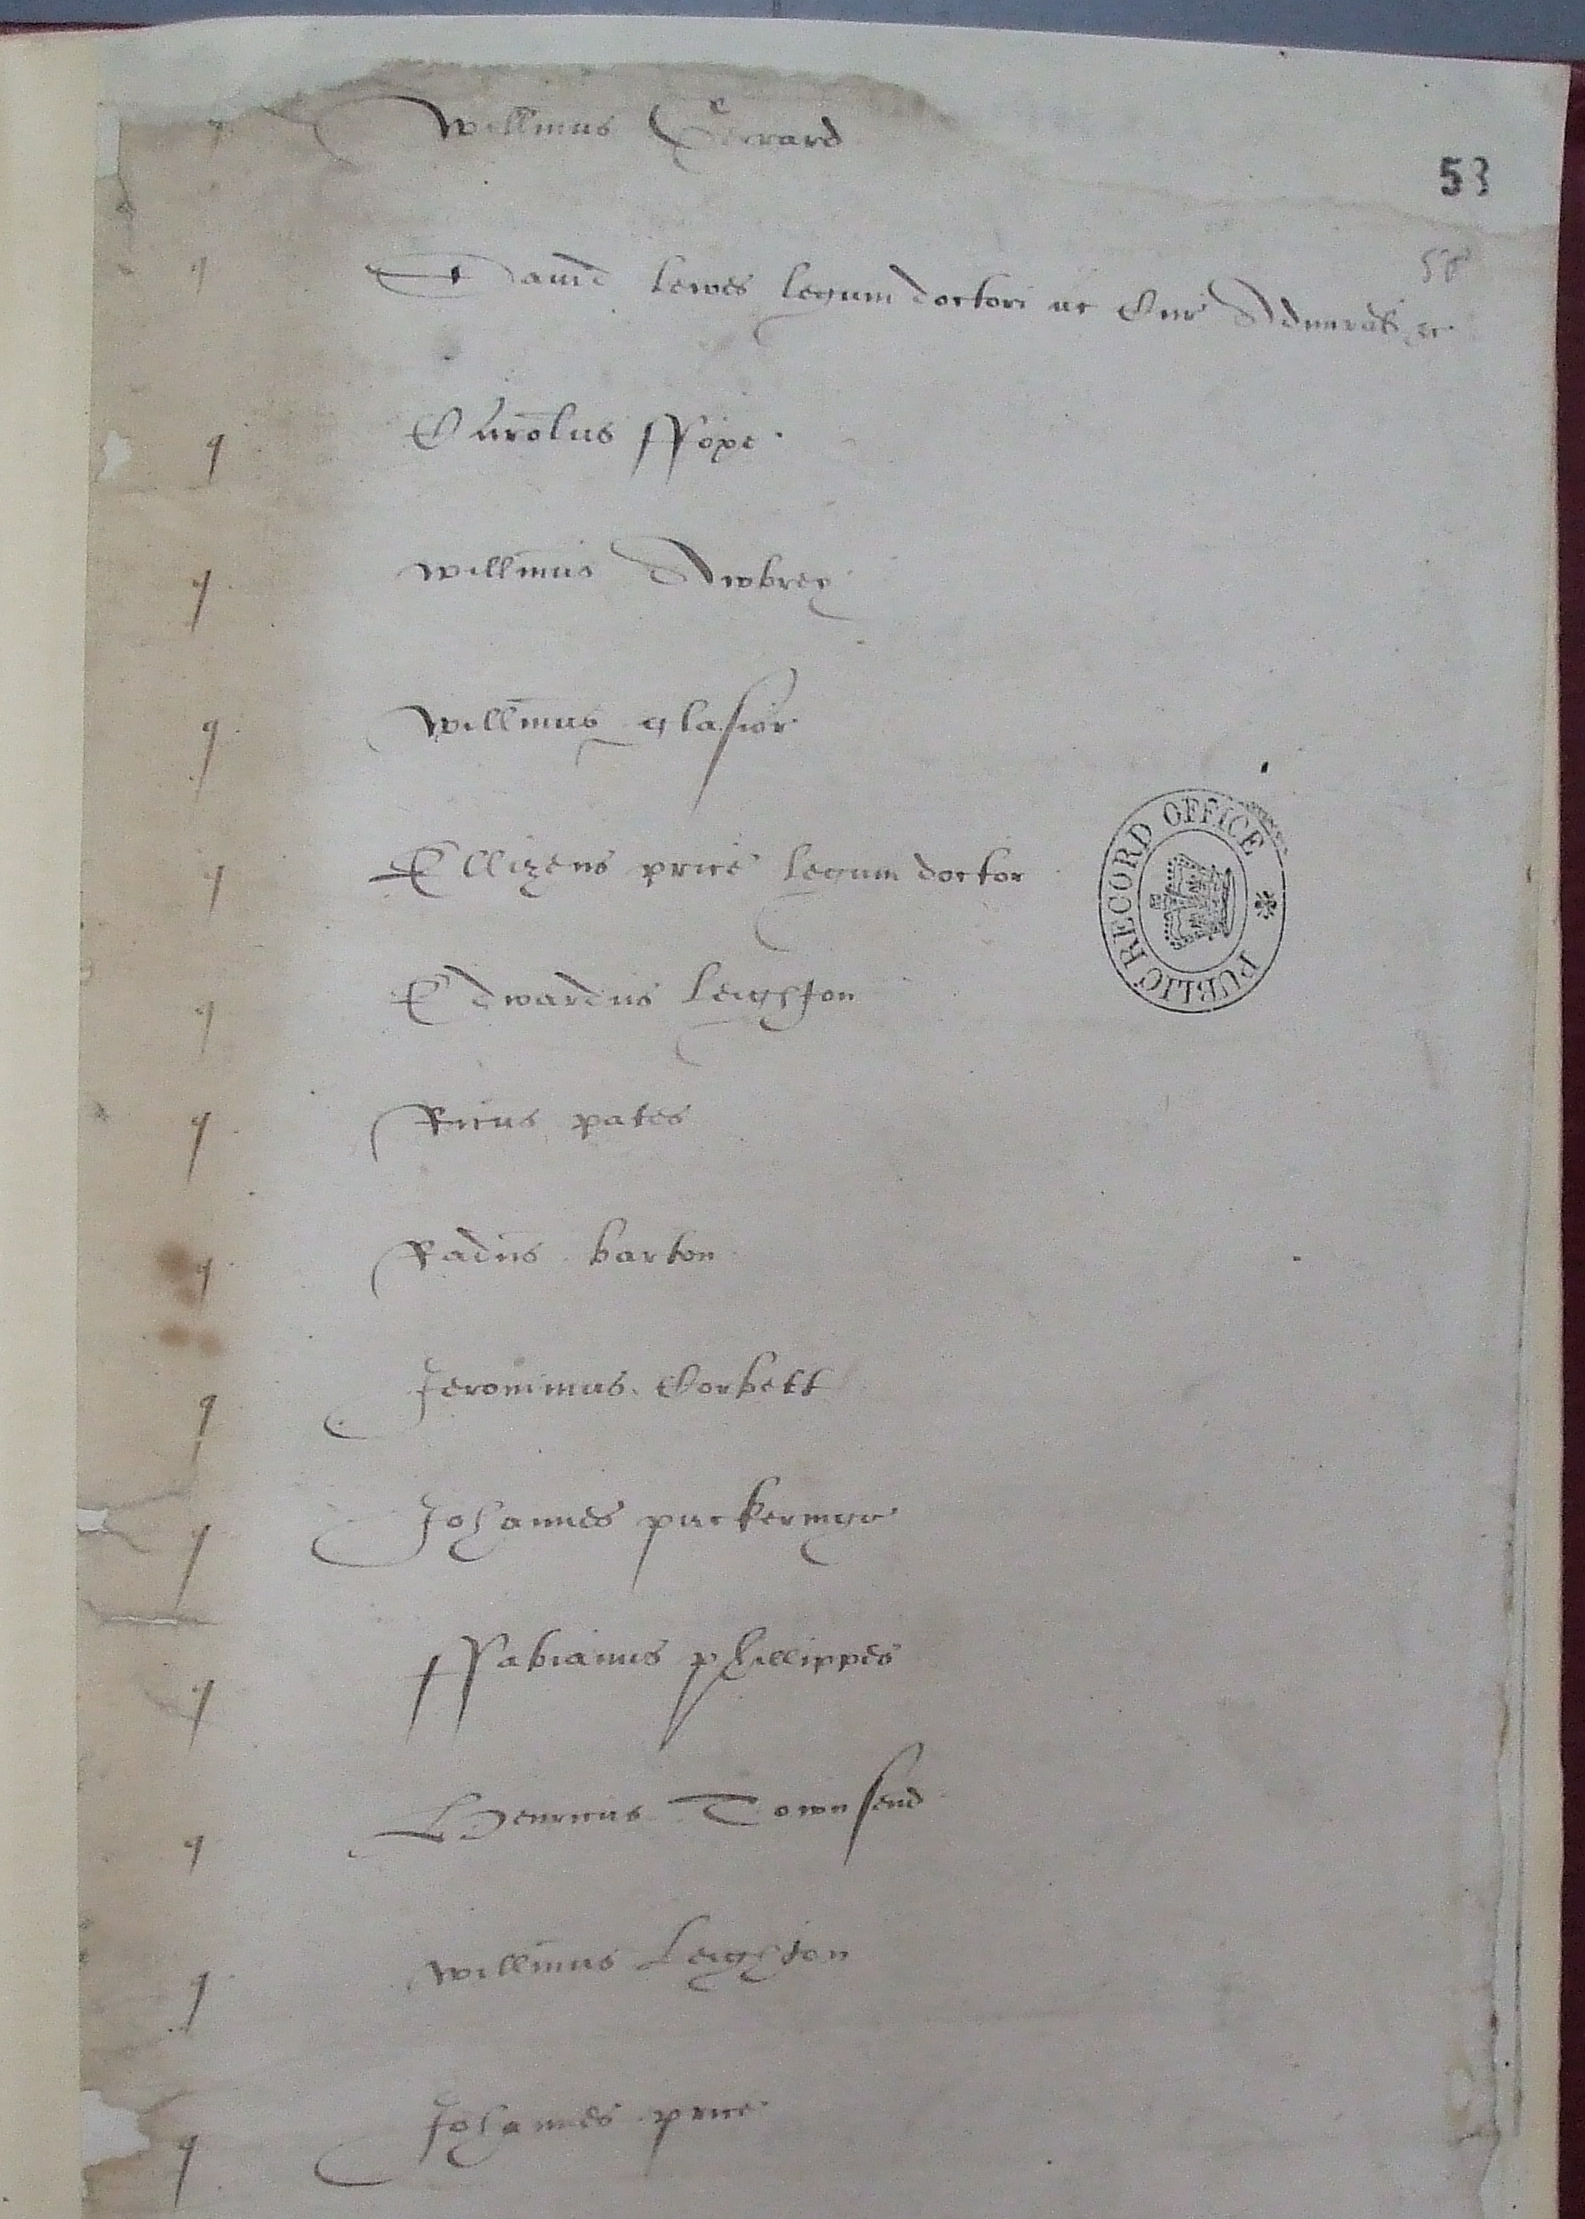 Willmus Gerrard
53
58
David Lewes legum doctori ac Cur Admiral &c.
Carolus ffoxe.
Willmus Awbrey
Willmus glasior
Ellizeus price legum doctor
PUBLIC RECORD OFFICE
Edwardus Leighton
Ricus pates
Radus barton
Jeronimus Corbett
Johannes puckeringe
ffabianus phillippes
Henricus Townsend
Willmus Leighton
Johannes price